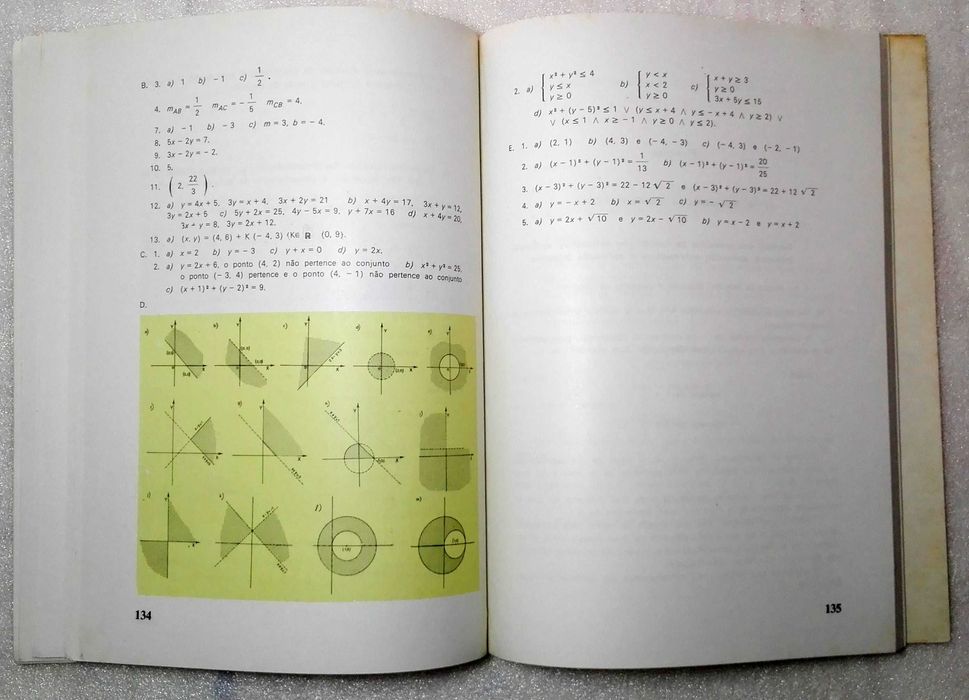 B. 3. a) 1 b) − 1 c) 1/2 .
4. mAB = 1/2 mAC = − 1/5 mCB = 4.
7. a) − 1 b) − 3 c) m = 3, b = − 4.
8. 5x − 2y = 7.
9. 3x − 2y = − 2.
10. 5.
11. ( 2, 22/3 ) .
12. a) y = 4x + 5, 3y = x + 4, 3x + 2y = 21 b) x + 4y = 17, 3x + y = 12,
3y = 2x + 5 c) 5y + 2x = 25, 4y − 5x = 9, y + 7x = 16 d) x + 4y = 20,
3x + y = 8, 3y = 2x + 12.
13. a) (x, y) = (4, 6) + K (− 4, 3) (K∈ R {0, 9}.
C. 1. a) x = 2 b) y = − 3 c) y + x = 0 d) y = 2x.
2. a) y = 2x + 6, o ponto (4, 2) não pertence ao conjunto b) x² + y² = 25,
o ponto (− 3, 4) pertence e o ponto (4, − 1) não pertence ao conjunto
c) (x + 1)² + (y − 2)² = 9.
D.
a) b) c) d) e)
f) g) h) i)
j) k) l) m)
134
2. a) { x² + y² ≤ 4 b) { y < x c) { x + y ≥ 3
y ≤ x x < 2 y ≥ 0
y ≥ 0 y ≥ 0 3x + 5y ≤ 15
d) x² + (y − 5)² ≤ 1 ∨ (y ≤ x + 4 ∧ y ≤ − x + 4 ∧ y ≥ 2) ∨
∨ (x ≤ 1 ∧ x ≥ − 1 ∧ y ≥ 0 ∧ y ≤ 2).
E. 1. a) (2, 1) b) (4, 3) e (− 4, − 3) c) (− 4, 3) e (− 2, − 1)
2. a) (x − 1)² + (y − 1)² = 1/13 b) (x − 1)² + (y − 1)² = 20/25
3. (x − 3)² + (y − 3)² = 22 − 12 √2 e (x − 3)² + (y − 3)² = 22 + 12 √2
4. a) y = − x + 2 b) x = √2 c) y = − √2
5. a) y = 2x + √10 e y = 2x − √10 b) y = x − 2 e y = x + 2
135